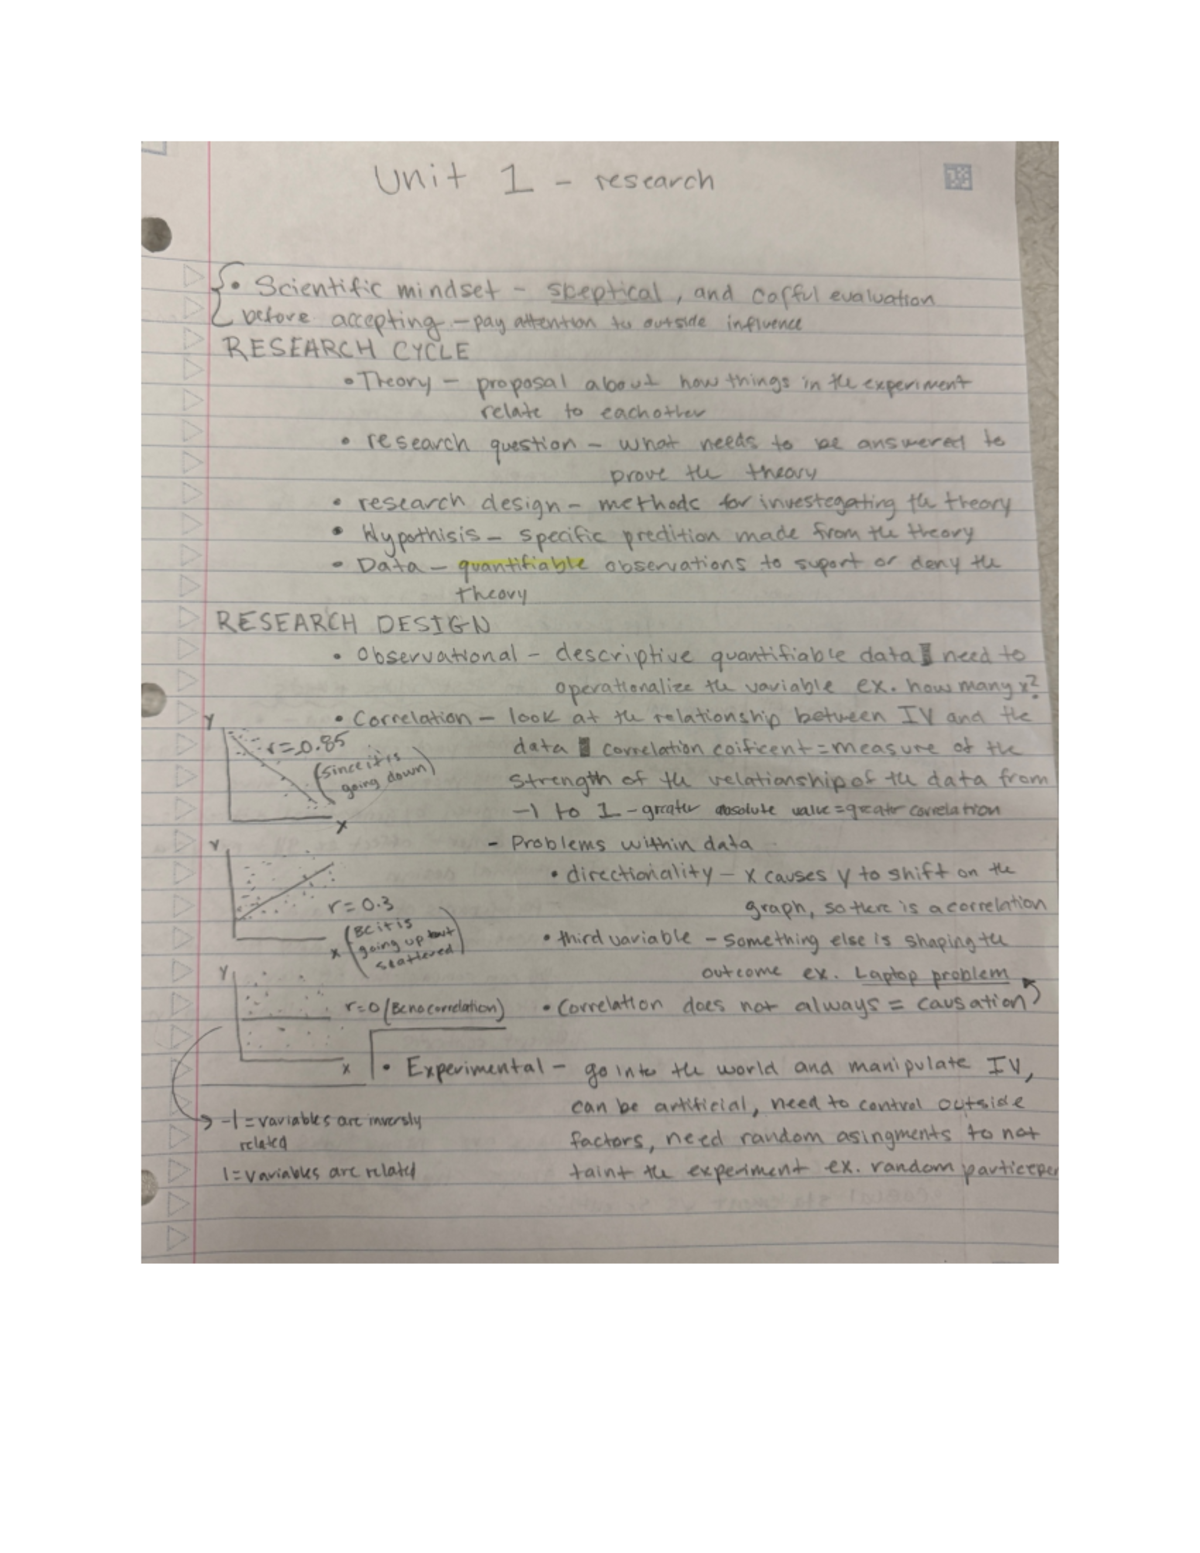 Unit 1 - research
• Scientific mindset - skeptical, and carful evaluation
before accepting - pay attention to outside influence
RESEARCH CYCLE
• Theory - proposal about how things in the experiment
relate to eachother
• research question - what needs to be answered to
prove the theory
• research design - methods for investegating the theory
• Hypothisis - specific predition made from the theory
• Data - quantifiable observations to suport or deny the
theory
RESEARCH DESIGN
• Observational - descriptive quantifiable data need to
operationalize the variable ex. how many x?
• Correlation - look at the relationship between IV and the
data correlation coificent = measure of the
strength of the relationship of the data from
-1 to 1 - greater absolute value = greater correlation
- Problems within data
• directionality - x causes y to shift on the
graph, so there is a correlation
• third variable - something else is shaping the
outcome ex. Laptop problem
• Correlation does not always = causation
• Experimental - go into the world and manipulate IV,
can be artificial, need to control outside
factors, need random asingments to not
taint the experiment ex. random
Y
r=-0.85
(since it is
going down)
X
Y
r=0.3
X
(BC it is
going up but
scattered)
Y
r=0 (BC no correlation)
X
-1 = variables are inversly
related
1 = variables are related